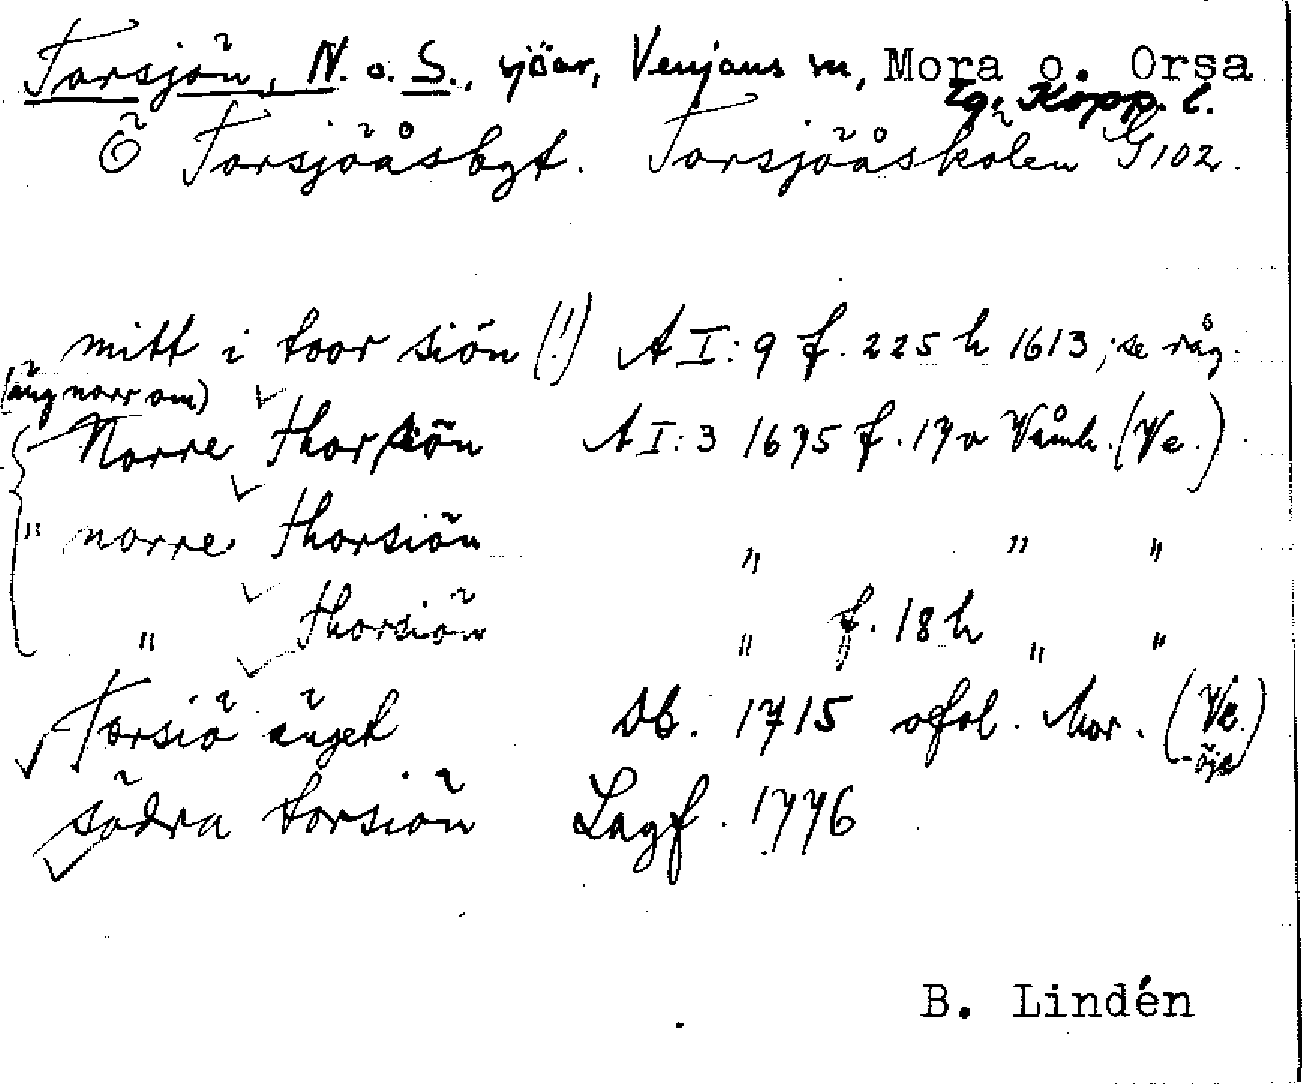 Torsjön, N. o. S., sjöar, Venjans sn, Mora o. Orsa
tg. Kopp. l.
Ö Torsjöåsbgt. Torsjöåskölen G 102.
mitt i toor siön (!) A I: 9 f. 225 h 1613; se råg.
(äng norr om)
Norre thorsiön A I: 3 1675 f. 17 v Våmh. (Ve.)
" norre thorsiön " " "
" thorsiön " f. 18 h " "
Torsiö änget Db. 1715 ofol. Mor. (Ve.)
södra torsiön Lagf. 1776
B. Lindén